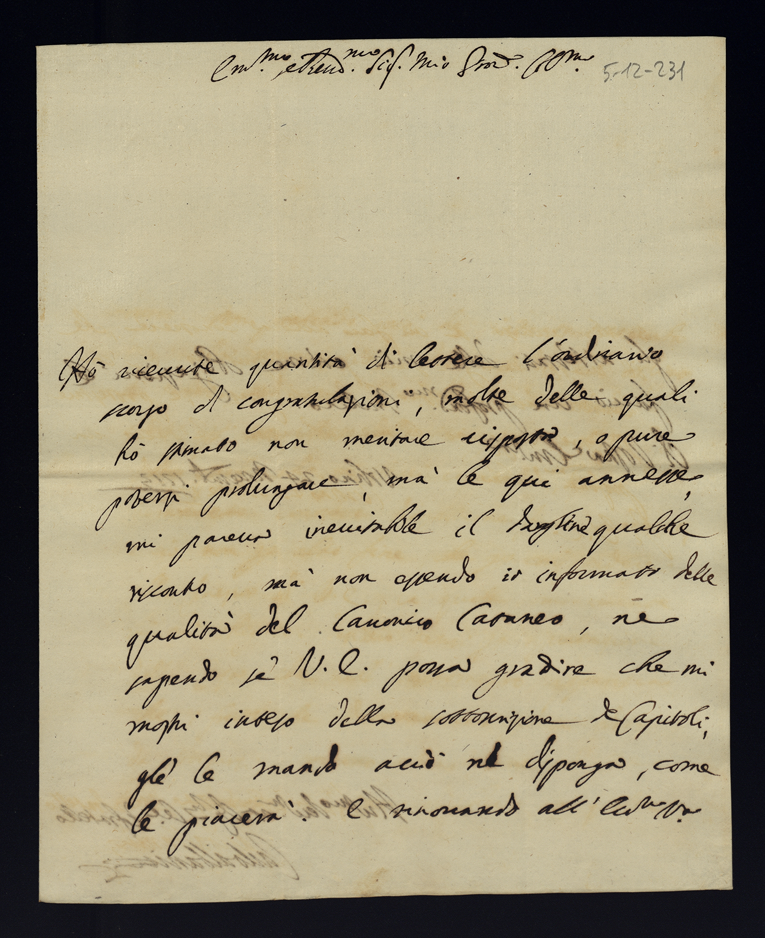 Em.mo e Rev.mo Sig. Mio Pron. Col.mo
5-12-231
Hò riceuute quantità di lettere l'ordinario
scorso di congratulazioni, molte delle quali
hò stimato non meritare risposta, ò pure
potersi prolungare, mà le qui annesse,
mi pareua ineuitabile il dargline qualche
riscontro, mà non essendo io informato delle
qualità del Canonico Cataneo, nè
sapendo sè V. E. possa gradire che mi
mostri inteso della sottoscrizione de Capitoli,
glè le mando acciò nè disponga, come
le piacerà. E rinouando all' Em.a V.a